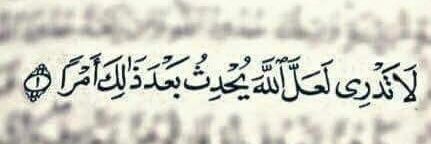 لَا تَدْرِى لَعَلَّ ٱللَّهَ يُحْدِثُ بَعْدَ ذَٰلِكَ أَمْرًا ۝١